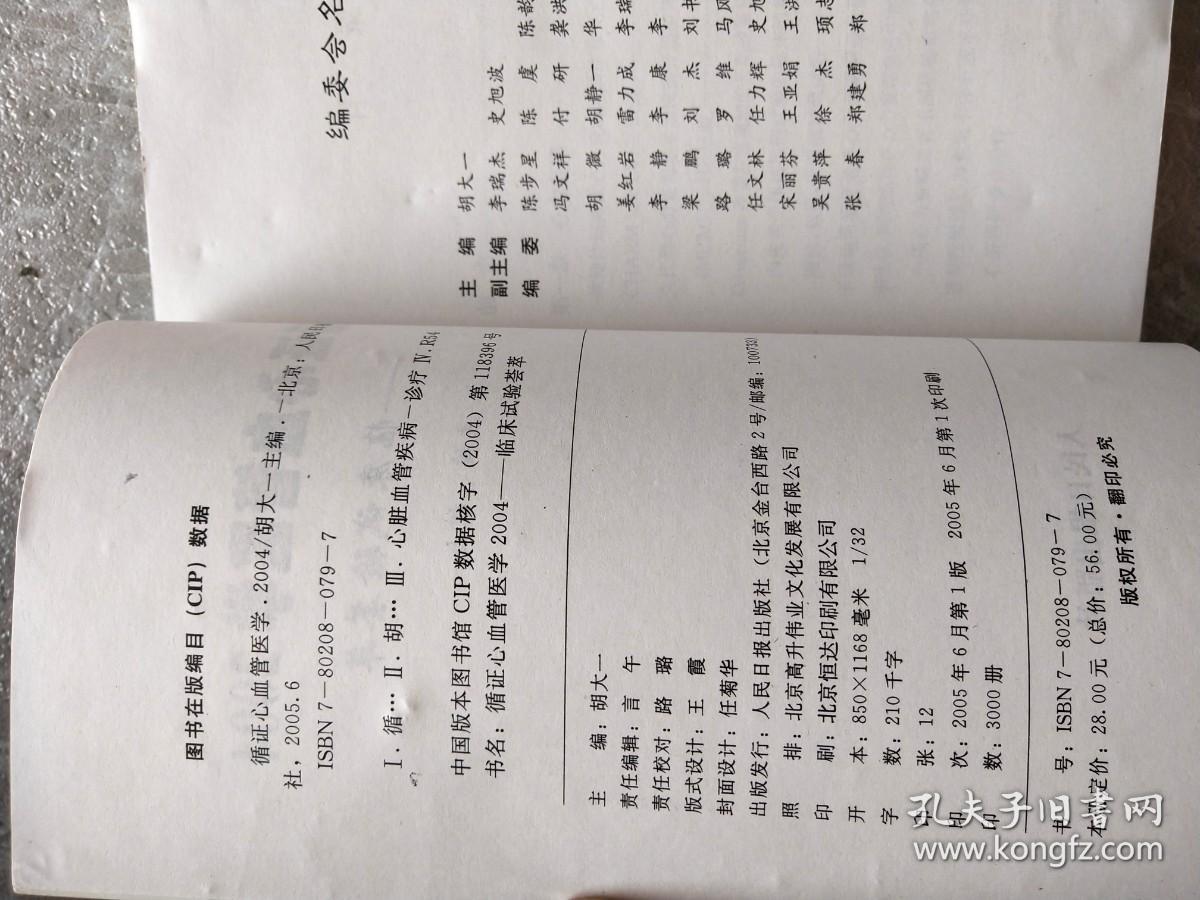 图书在版编目（CIP）数据
循证心血管医学．2004/胡大一主编．—北京：人民日
社，2005.6
ISBN 7－80208－079－7
Ⅰ．循… Ⅱ．胡… Ⅲ．心脏血管疾病－诊疗 Ⅳ．R54
中国版本图书馆 CIP 数据核字（2004）第 118396 号
书名：循证心血管医学 2004——临床试验荟萃
主 编：胡大一
责任编辑：言 午
责任校对：路 璐
版式设计：王 霞
封面设计：任菊华
出版发行：人民日报出版社（北京金台西路 2 号/邮编：100733）
照 排：北京高升伟业文化发展有限公司
印 刷：北京恒达印刷有限公司
开 本：850×1168 毫米 1/32
字 数：210 千字
印 张：12
印 次：2005 年 6 月第 1 版 2005 年 6 月第 1 次印刷
印 数：3000 册
书 号：ISBN 7－80208－079－7
本册定价：28.00 元（总价：56.00 元）
版权所有·翻印必究
编委会名
主 编 胡大一
副主编 李瑞杰 史旭波
编 委 陈步星 陈 虞 陈韵
冯文祥 付 研 龚洪
胡 微 胡静一 华
姜红岩 雷力成 李瑞
李 静 李 康 李
梁 鹏 刘 杰 刘书
路 璐 罗 维 马风
任文林 任力辉 史旭
宋丽芬 王亚娟 王洪
吴贵萍 徐 杰 顼志
张 春 郑建勇 郑
孔夫子旧书网
www.kongfz.com